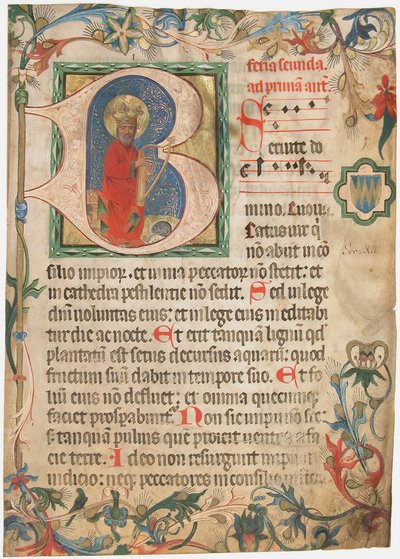 feria secunda
ad primā ant̄.
Seruite do
mino. Euouae
B eatus uir q
nō abiit in cō
silio impior. et in uia peccator nō stetit: et
in cathedra pestilentie nō sedit. Sed in lege
dn̄i uoluntas eius: et in lege eius meditabi
tur die ac nocte. Et erit tanquā lignū qd
plantatū est secus decursus aquarū: quod
fructum suū dabit in tempore suo. Et fo
liū eius nō defluet: et omnia quecumq;
faciet prosperabunt̄. Non sic impii nō sic:
s; tanquā puluis quē proicit uentus a fa
cie terre. Ideo non resurgunt impii in
iudicio: neq; peccatores in consilio